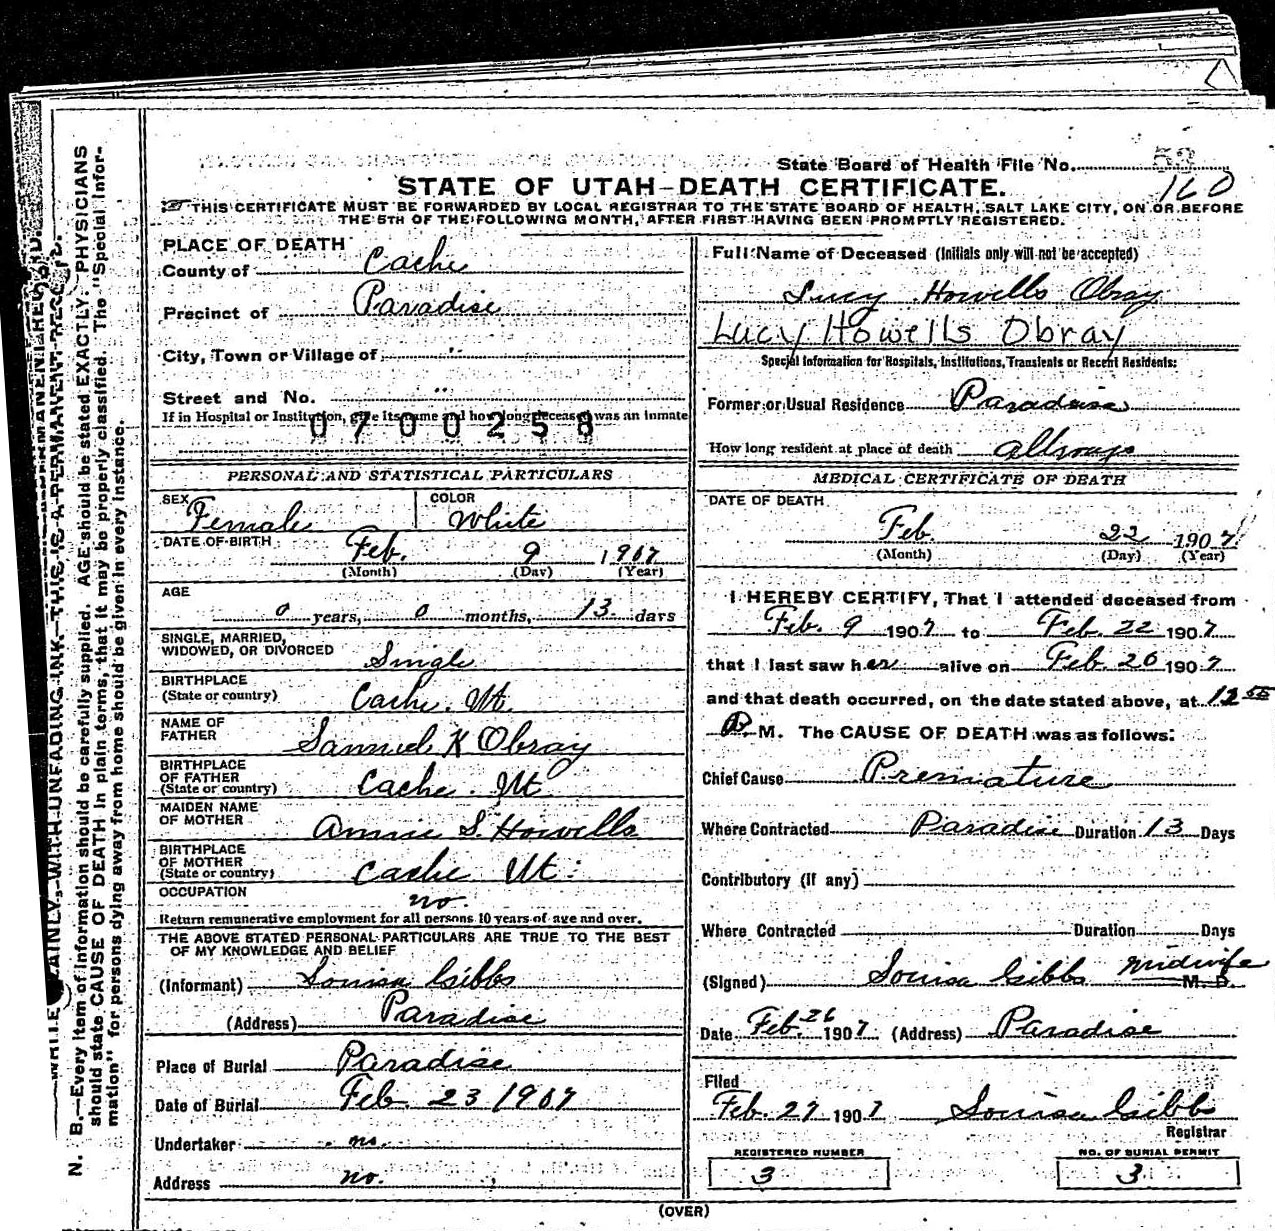 State Board of Health File No. 53
160
STATE OF UTAH—DEATH CERTIFICATE.
THIS CERTIFICATE MUST BE FORWARDED BY LOCAL REGISTRAR TO THE STATE BOARD OF HEALTH, SALT LAKE CITY, ON OR BEFORE
THE 5TH OF THE FOLLOWING MONTH, AFTER FIRST HAVING BEEN PROMPTLY REGISTERED.
PLACE OF DEATH
County of Cache
Precinct of Paradise
City, Town or Village of "
Street and No. "
If in Hospital or Institution, give its name and how long deceased was an inmate
0700258
PERSONAL AND STATISTICAL PARTICULARS
SEX Female COLOR White
DATE OF BIRTH Feb. 9 1907
(Month) (Day) (Year)
AGE
0 years, 0 months, 13 days
SINGLE, MARRIED,
WIDOWED, OR DIVORCED Single
BIRTHPLACE
(State or country) Cache. Ut
NAME OF
FATHER Samuel K Obray
BIRTHPLACE
OF FATHER
(State or country) Cache. Ut
MAIDEN NAME
OF MOTHER Annie S. Howells
BIRTHPLACE
OF MOTHER
(State or country) Cache Ut.
OCCUPATION no.
Return remunerative employment for all persons 10 years of age and over.
THE ABOVE STATED PERSONAL PARTICULARS ARE TRUE TO THE BEST
OF MY KNOWLEDGE AND BELIEF
(Informant) Louisa Gibbs
(Address) Paradise
Place of Burial Paradise
Date of Burial Feb. 23 1907
Undertaker no.
Address no.
Full Name of Deceased (Initials only will not be accepted)
Lucy Howells Obray
Lucy Howells Obray
Special Information for Hospitals, Institutions, Transients or Recent Residents:
Former or Usual Residence Paradise
How long resident at place of death allways
MEDICAL CERTIFICATE OF DEATH
DATE OF DEATH
Feb. 22 1907
(Month) (Day) (Year)
I HEREBY CERTIFY, That I attended deceased from
Feb. 9 1907 to Feb. 22 1907
that I last saw her alive on Feb 20 1907
and that death occurred, on the date stated above, at 12 55
P. M. The CAUSE OF DEATH was as follows:
Chief Cause Premature
Where Contracted Paradise Duration 13 Days
Contributory (if any)
Where Contracted Duration Days
(Signed) Louisa Gibbs Midwife M. D.
Date Feb. 26 1907 (Address) Paradise
Filed
Feb. 27 1907 Louisa Gibbs
Registrar
REGISTERED NUMBER
3
NO. OF BURIAL PERMIT
3
(OVER)
WITH UNFADING INK—THIS IS A PERMANENT RECORD.
N. B.—Every item of information should be carefully supplied. AGE should be stated EXACTLY. PHYSICIANS
should state CAUSE OF DEATH in plain terms, that it may be properly classified. The "Special Infor-
mation" for persons dying away from home should be given in every instance.